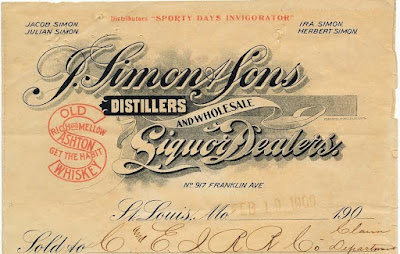 JACOB SIMON.
JULIAN SIMON.
Distributors "SPORTY DAYS INVIGORATOR"
IRA SIMON.
HERBERT SIMON.
J. Simon & Sons
DISTILLERS
AND WHOLESALE
Liquor Dealers.
OLD
RICH AND MELLOW
ASHTON
GET THE HABIT
WHISKEY
No. 917 FRANKLIN AVE.
St. Louis, Mo. 190
Sold to C & E I R R Co Claim
Department